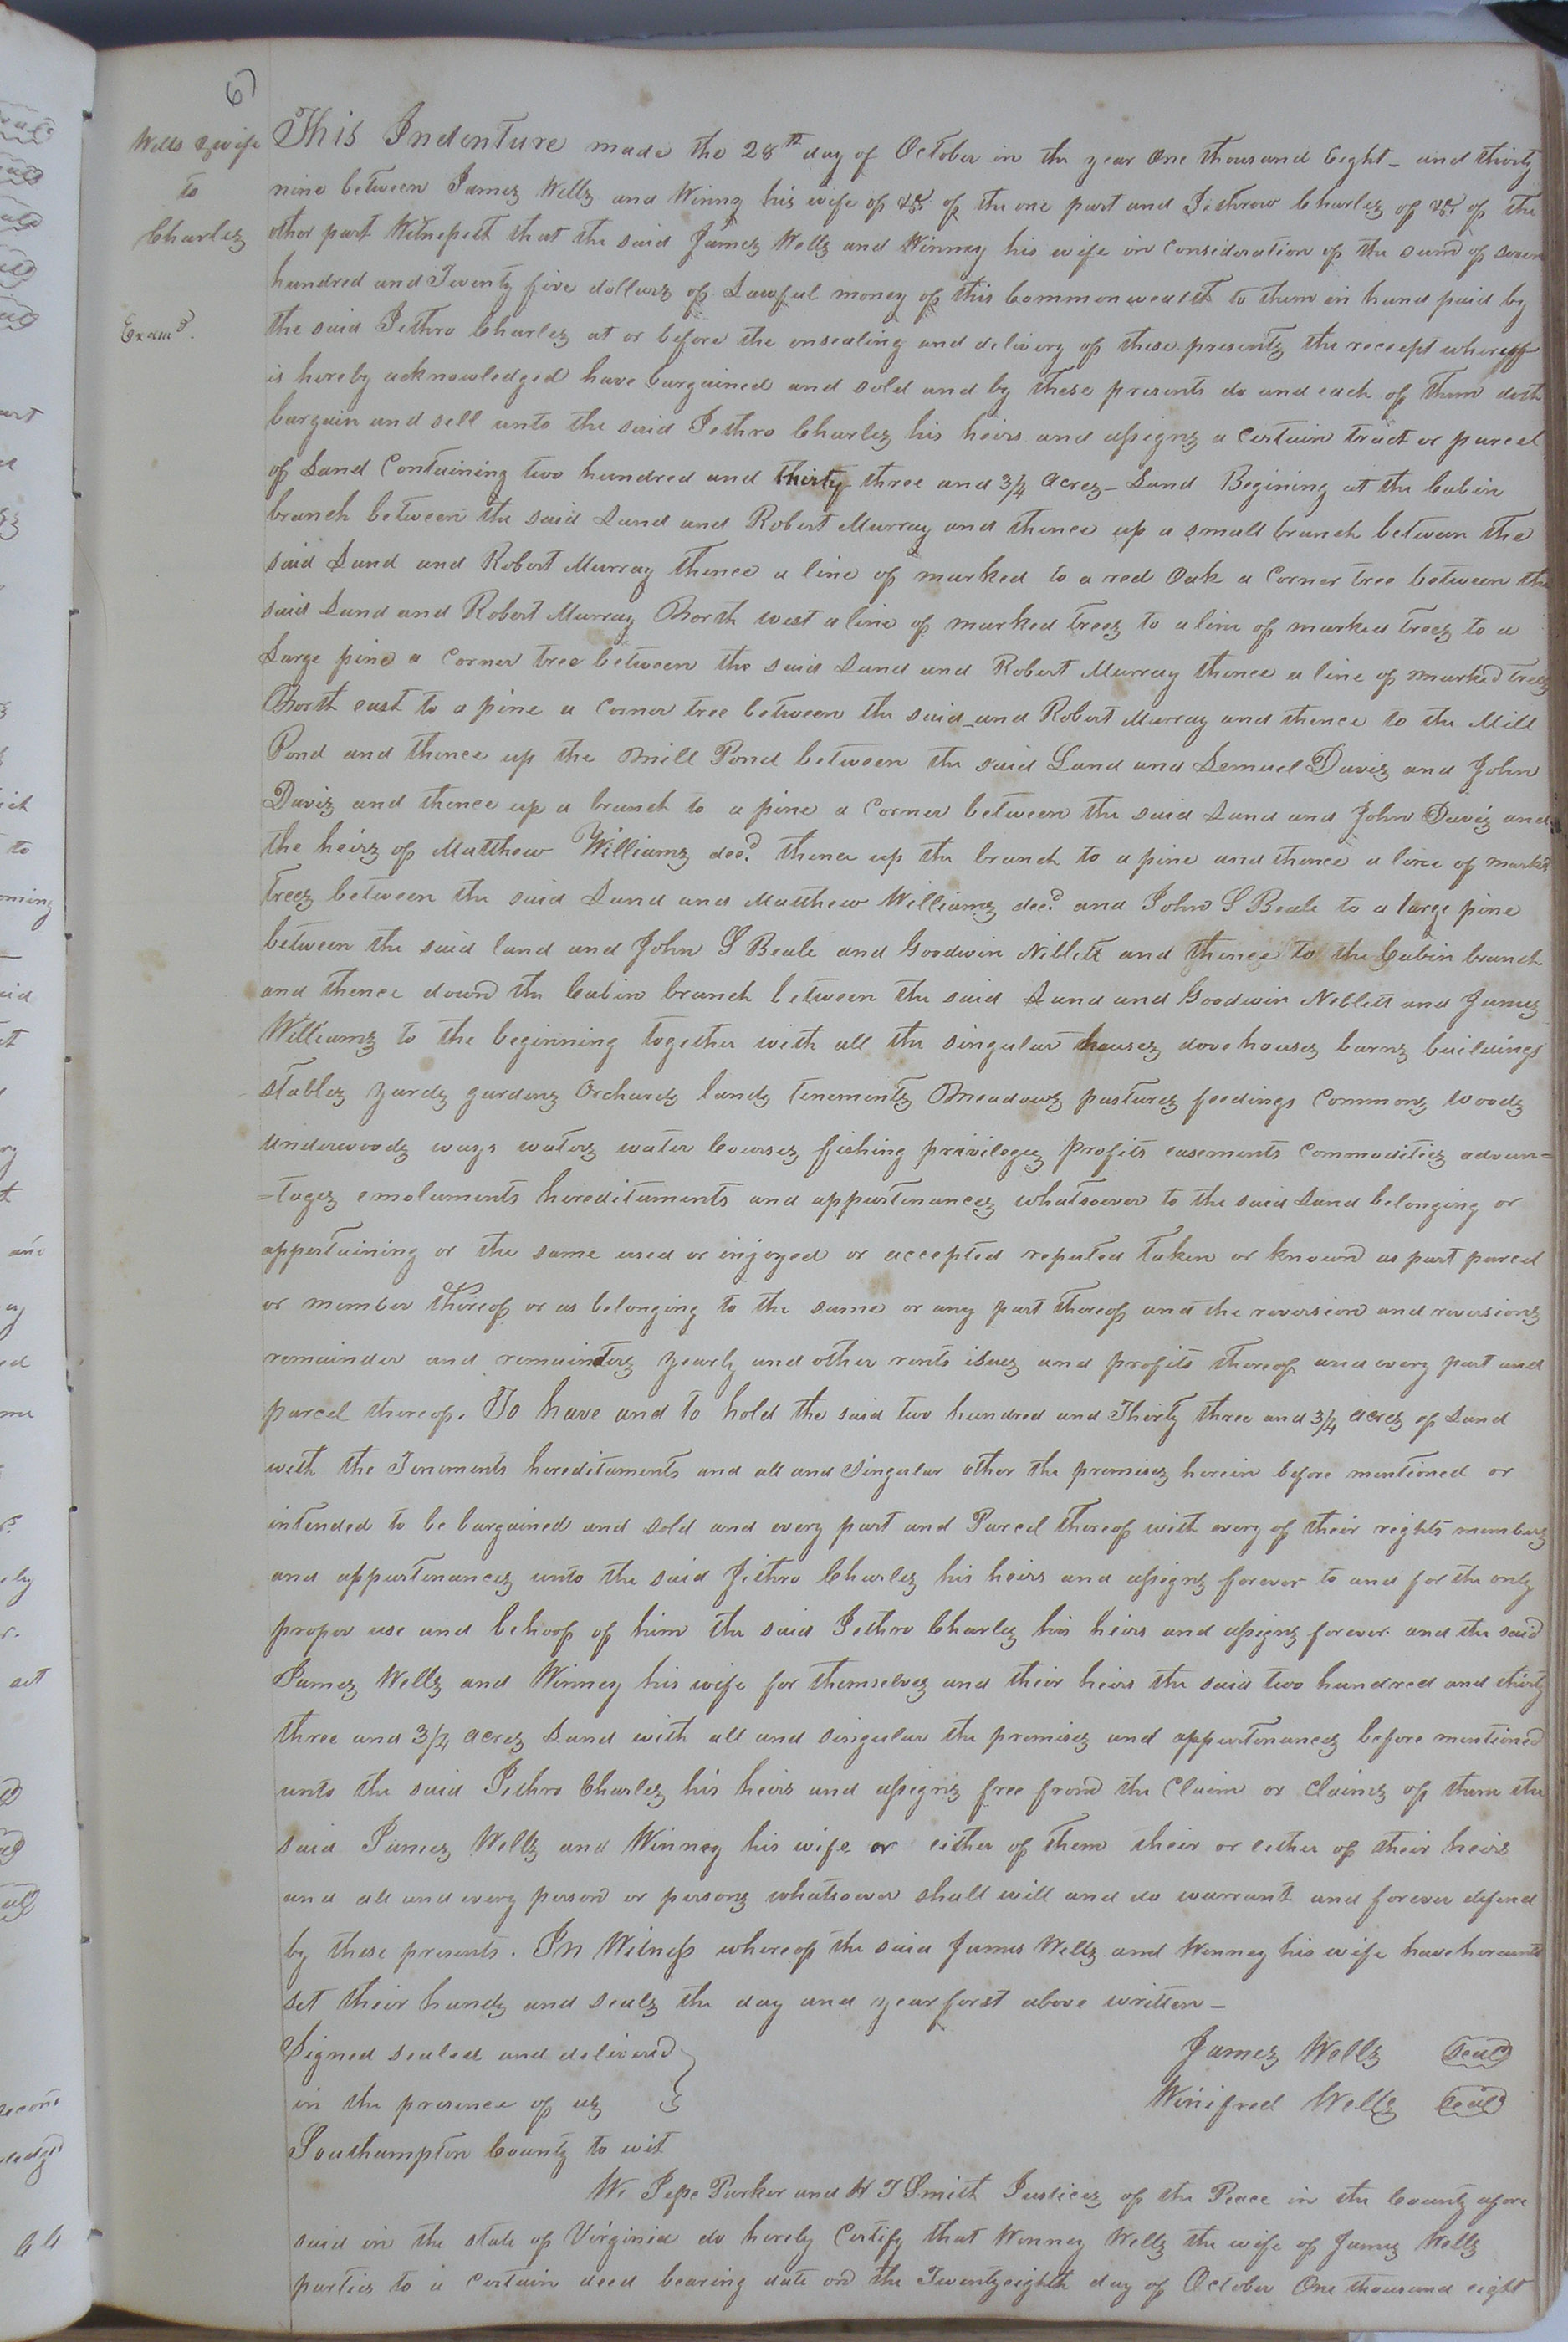 67
Wells & wife
to
Charles
Exam.d
This Indenture made the 28th day of October in the year One thousand Eight_ and thirty
nine between James Wells and Winny his wife of &c. of the one part and Jethrow Charles of &c. of the
other part Witnesseth that the said James Wells and Winney his wife in Consideration of the sum of seven
hundred and Twenty five dollars of Lawful money of this Commonwealth to them in hand paid by
the said Jethro Charles at or before the ensealing and delivery of these presents the receipt whereof
is hereby acknowledged have bargained and sold and by these presents do and each of them doth
bargain and sell unto the said Jethro Charles his heirs and assigns a Certain tract or parcel
of Land Containing two hundred and thirty three and 3/4 acres_ Land Begining at the Cabin
branch between the said Land and Robert Murray and thence up a small branch between the
said Land and Robert Murray thence a line of marked to a red Oak a Corner tree between the
said Land and Robert Murray North west a line of marked trees to a line of marked trees to a
Large pine a Corner tree between the said Land and Robert Murray thence a line of marked trees
North east to a pine a Corner tree between the said_and Robert Murray and thence to the Mill
Pond and thence up the Mill Pond between the said Land and Lemuel Davis and John
Davis and thence up a branch to a pine a Corner between the said Land and John Davis and
the heirs of Matthew Williams dec.d thence up the branch to a pine and thence a line of markd
trees between the said Land and Matthew Williams dec.d and John S Beale to a large pine
between the said land and John S Beale and Goodwin Niblett and thence to the Cabin branch
and thence down the Cabin branch between the said Land and Goodwin Neblett and James
Williams to the beginning together with all the singular houses dovehouses barns buildings
stables yards gardens Orchards lands tenements Meadows pastures feedings Commons woods
underwoods ways waters water Courses fishing privileges Profits easements Commodities advan=
=tages emoluments hereditaments and appurtenances whatsoever to the said Land belonging or
appertaining or the same used or injoyed or accepted reputed taken or known as part parcel
or member thereof or as belonging to the same or any part thereof and the reversion and reversions
remainder and remainders yearly and other rents issues and profits thereof and every part and
parcel thereof. To have and to hold the said two hundred and Thirty three and 3/4 acres of Land
with the Tenements hereditaments and all and Singular other the premises herein before mentioned or
intended to be bargained and sold and every part and Parcel thereof with every of their rights members
and appurtenances unto the said Jethro Charles his heirs and assigns forever to and for the only
proper use and behoof of him the said Jethro Charles his heirs and assigns forever. and the said
James Wells and Winney his wife for themselves and their heirs the said two hundred and thirty
three and 3/4 acres Land with all and singular the premises and appurtenances before mentioned
unto the said Jethro Charles his heirs and assigns free from the Claim or Claims of them the
said James Wells and Winney his wife or either of them their or either of their heirs
and all and every person or persons whatsoever shall will and do warrant and forever defend
by these presents. In Witness whereof the said James Wells and Winney his wife have hereunto
set their hands and seals the day and year first above written_
Signed sealed and delivered
James Wells Seal
in the presence of us
Winifred Wells Seal
Southampton County to wit
We Jesse Parker and H T Smith Justices of the Peace in the County afore
said in the state of Virginia do hereby Certify that Winney Wells the wife of James Wells
parties to a Certain deed bearing date on the Twentyeighth day of October One thousand eight